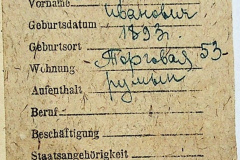 Vorname Иванович
Geburtsdatum 1893г.
Geburtsort
Wohnung Торговая 53-
Aufenthalt румын
Beruf
Beschäftigung
Staatsangehörigkeit